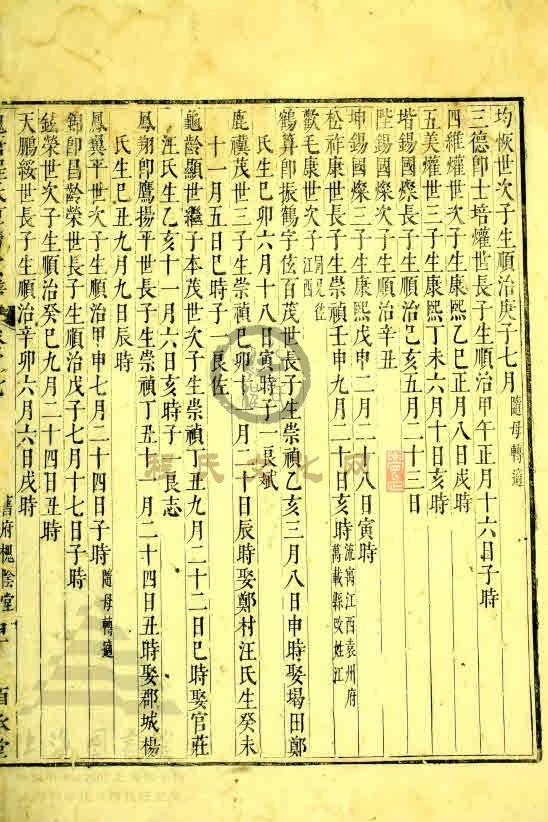 均恢世次子生順治庚子七月隨母轉適
三德卽士培爟世長子生順治甲午正月十六日子時
四維爟世次子生康熙乙巳正月八日戌時
五美爟世三子生康熙丁未六月十日亥時
堦錫國燦長子生順治己亥五月二十三日
陛錫國燦次子生順治辛丑
坤錫國燦三子生康熙戊申二月二十八日寅時
松祚康世長子生崇禎壬申九月二十日亥時流寓江西袁州府萬載縣改姓江
歡毛康世次子江西
鶴算卽振鶴字伭百茂世長子生崇禎乙亥三月八日申時娶塌田鄭
氏生己卯六月十八日寅時子一長斌
鹿禩茂世三子生崇禎己卯十二月二十日辰時娶鄭村汪氏生癸未
十一月五日巳時子一良佐
龜齡顯世繼子本茂世次子生崇禎丁丑九月二十二日巳時娶官莊
汪氏生乙亥十一月六日亥時子一良志
鳳翔卽鷹揚平世長子生崇禎丁丑十一月二十四日丑時娶郡城楊
氏生己丑九月九日辰時
鳳翼平世次子生順治甲申七月二十四日子時隨母轉適
錦卽昌齡榮世長子生順治戊子七月十七日子時
鋕榮世次子生順治癸巳九月二十四日丑時
天鵬綏世長子生順治辛卯六月六日戌時
舊府槐陰堂
百忍堂
程氏文化网